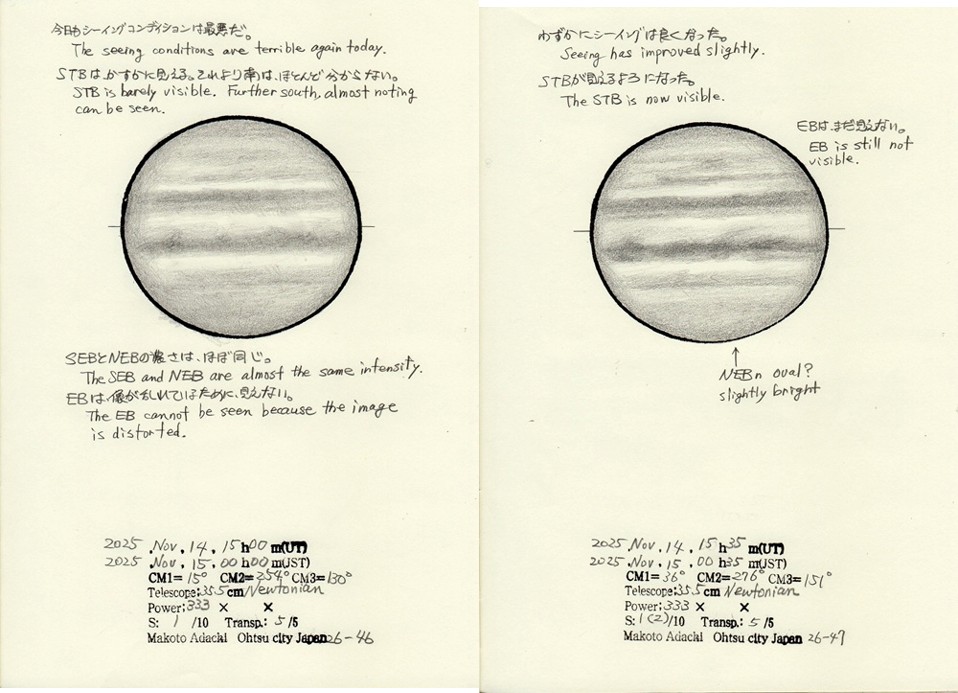 今日もシーイングコンディションは最悪だ。
The seeing conditions are terrible again today.
STBは、かすかに見える。それより南は、ほとんど分からない。
STB is barely visible. Further south, almost noting
can be seen.
SEBとNEBの濃さは、ほぼ同じ。
The SEB and NEB are almost the same intensity.
EBは、像が乱れているために、見えない。
The EB cannot be seen because the image
is distorted.
2025 .Nov. 14. 15 h00 m(UT)
2025 .Nov. 15. 00 h00 m(JST)
CM1= 15° CM2= 254° CM3= 130°
Telescope: 35.5 cm/Newtonian
Power: 333 × ×
S: 1 /10 Transp.: 5 /5
Makoto Adachi Ohtsu city Japan 26-46
わずかにシーイングは良くなった。
Seeing has improved slightly.
STBが見えるようになった。
The STB is now visible.
EBは、まだ見えない。
EB is still not
visible.
↑
NEBn oval?
slightly bright
2025 .Nov. 14. 15 h35 m(UT)
2025 .Nov. 15. 00 h35 m(JST)
CM1= 36° CM2= 276° CM3= 151°
Telescope: 35.5 cm Newtonian
Power: 333 × ×
S: 1(2)/10 Transp.: 5 /5
Makoto Adachi Ohtsu city Japan 26-47